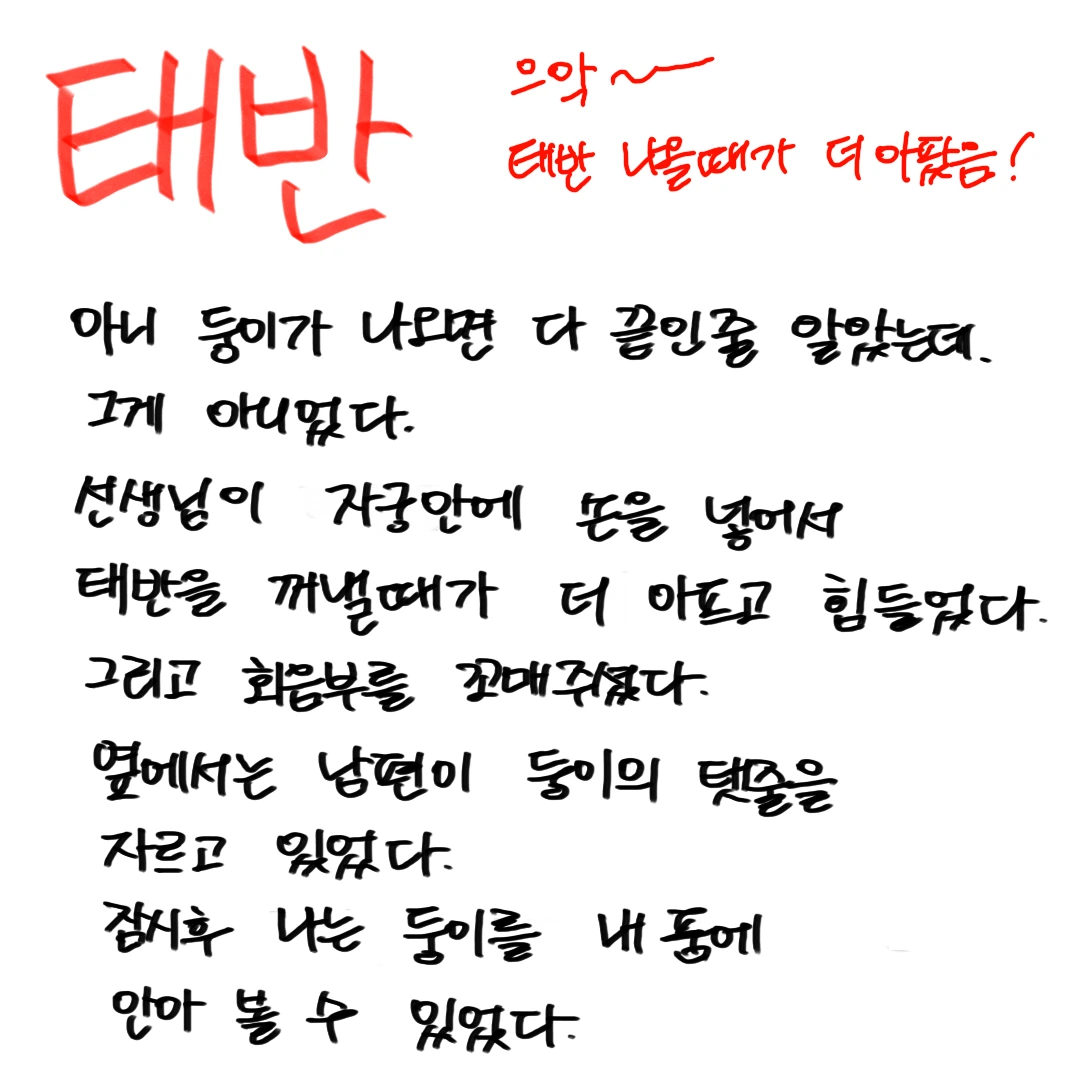 태반
으악~
태반 나올때가 더 아팠음!
아니 둥이가 나오면 다 끝인줄 알았는데.
그게 아니었다.
선생님이 자궁안에 손을 넣어서
태반을 꺼낼때가 더 아프고 힘들었다.
그리고 회음부를 꼬매주셨다.
옆에서는 남편이 둥이의 탯줄을
자르고 있었다.
잠시후 나는 둥이를 내 품에
안아 볼 수 있었다.